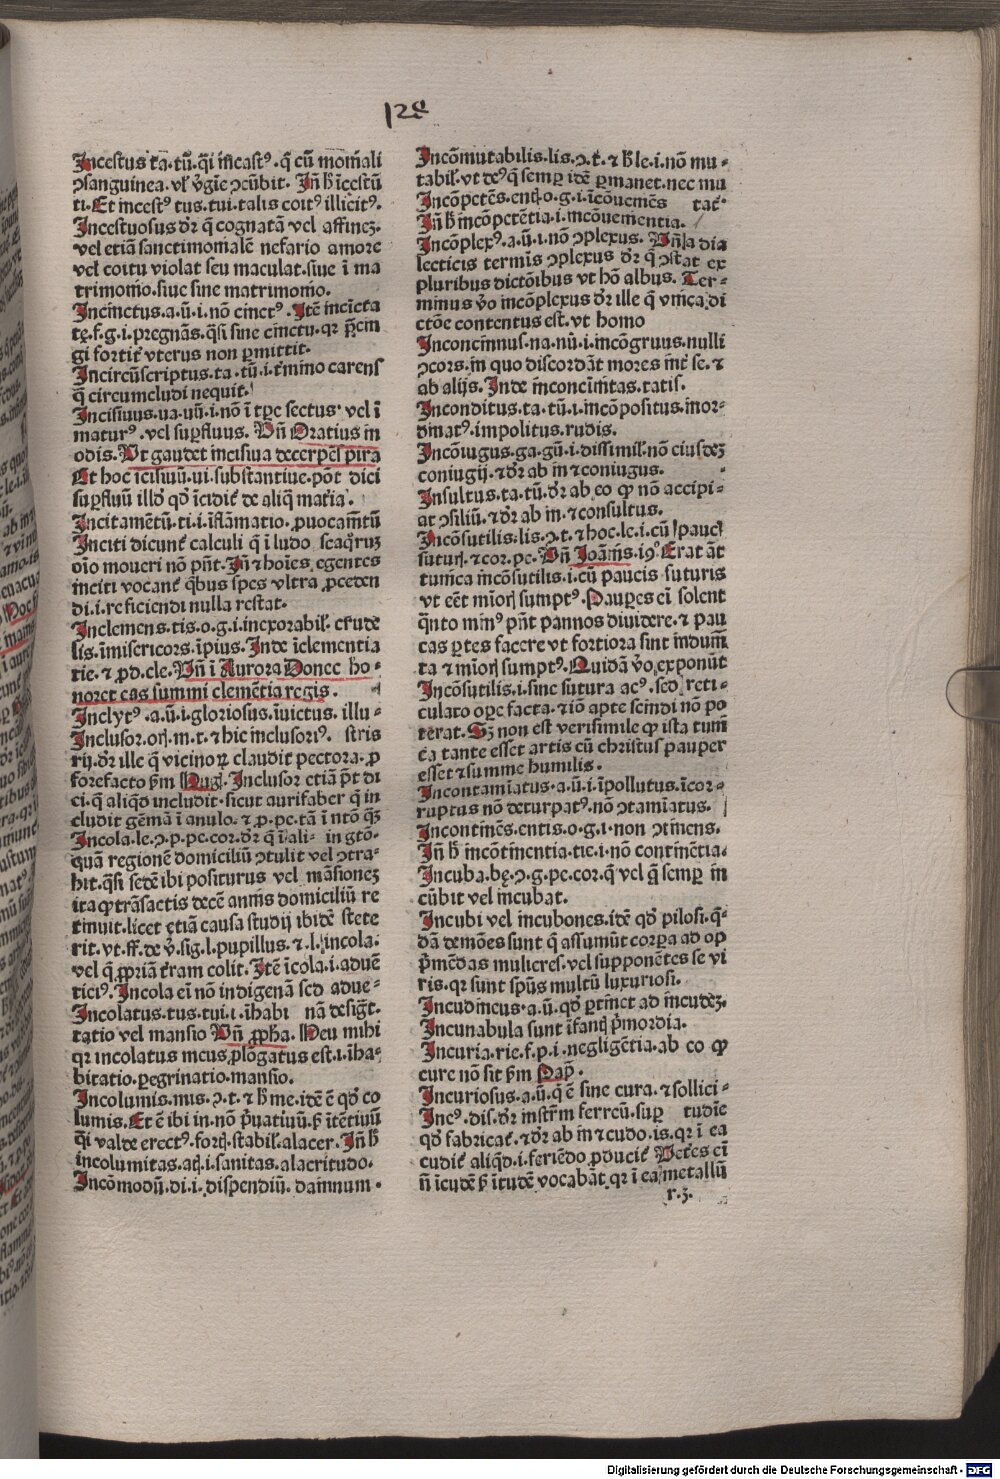 128
Incestus ta.tũ. q̃i ĩncastꝰ. q̃ cũ moĩali
ↄsanguinea. vl' v̾gĩe ↄcũbit. Iñ h̃ ĩcestũ
ti. Et incestꝰ tus.tui.talis coitꝰ illicitꝰ.
Incestuosus dr̃ q̃ cognatã vel affineꝫ.
vel etiã sanctimonialẽ nefario amore
vel coitu violat seu maculat. siue ĩ ma
trimonio. siue sine matrimonio.
Incinctus.a.ũ.i. nõ cinctꝰ. Itẽ incĩcta
te.f.g.i. pregnãs. q̃si sine cinctu. qꝛ p̃cin
gi fortit̃ vterus non ꝑmittit.
Incircũscriptus.ta.tũ.i. t̃mino carens
q̃ circumcludi nequit.
Incisiuus.ua.uũ.i. nõ ĩ tꝑe sectus. vel ĩ
maturꝰ. vel suꝑfluus. Vñ Oratius in
odis. Vt gaudet incisiua decerpẽs pira
Et hoc ĩcisiuũ.ui. substantiue. põt dici
suꝑfluũ illd' qd' ĩcidit̃ de aliq̃ mat̃ia.
Incitamẽtũ.ti.i. ĩflãmatio. ꝓuocam̃tũ
Inciti dicunt̃ calculi q̃ ĩ ludo scaq̃ruꝫ
oĩo moueri nõ pñt. Iñ ⁊ hoĩes egentes
inciti vocant̃ q̃bus spes vltra ꝓceden
di.i. reficiendi nulla restat.
Inclemens.tis.o.g.i. inexorabil'. crude
lis. ĩmisericors. ĩpius. Inde ĩclementia
tie. ⁊ ꝓd.cle. Vñ ĩ Aurora Donec ho-
noret eas summi clemẽtia regis.
Inclytꝰ.a.ũ.i. gloriosus. ĩuictus. illu-
Inclusor.oꝝ.m.t. ⁊ hic inclusoriꝰ. stris
rij. dr̃ ille q̃ vicinoꝝ claudit pectora. ꝓ
forefacto ẜm Hug̃. Inclusor etiã põt di
ci. q̃ aliqd includit. sicut aurifaber q̃ in
cludit gẽmã ĩ anulo. ⁊ ꝓ.pe. tã ĩ ntõ q̃ꝫ
Incola.le.ↄ.p.pe.cor. dr̃ q̃ ĩ ali- in gtõ.
quã regionẽ domiciliũ ↄtulit vel ↄtra-
hit. q̃si sedẽ ibi positurus vel mãsioneꝫ
ita ꝙ trãsactis decẽ annis domiciliũ re
tinuit. licet etiã causa studij ibidẽ stete
rit. vt. ff. de v̾.sig.l. pupillus. ⁊.l. incola.
vel q̃ ꝓpriã t̃ram colit. Itẽ ĩcola.i. aduẽ
ticiꝰ. Incola eĩ nõ indigenã sed adue-
Incolatus.tus.tui.i. ĩhabi nã desigt̃.
tatio vel mansio Vñ ꝓph̃a. Heu mihi
qꝛ incolatus meus ꝓlõgatus est.i. ĩha-
bitatio. ꝑegrinatio. mansio.
Incolumis.mis.ↄ.t. ⁊ h̃ me. idẽ ẽ qd' co
lumis. Et ẽ ibi in. nõ p̃uatiuũ. ẜ ĩtẽtiuũ
q̃i valde erectꝰ. forꝭ. stabil'. alacer. Iñ h̃
incolumitas.aꝭ.i. sanitas. alacritudo.
Incõmodũ.di.i. dispendiũ. damnum.
Incõmutabilis.lis.ↄ.t. ⁊ h̃ le.i. nõ mu-
tabil'. vt deꝰ q̃ semꝑ idẽ ꝑmanet. nec mu
Incõpetẽs.entꝭ.o.g.i. ĩcõueniẽs tat̃.
Iñ h̃ incõpetẽtia.i. incõuenientia.
Incõplexꝰ.a.ũ.i. nõ ↄplexus. Vñ ĩ dia
lecticis terminis ↄplexus dr̃ q̃ ↄstat ex
pluribus dictõibus vt hõ albus. Ter-
minus v̾o incõplexus dr̃ ille q̃ vnica di
ctõe contentus est. vt homo
Inconcinnus.na.nũ.i. incõgruus. nulli
ↄcors. in quo discordãt mores int̃ se. ⁊
ab alijs. Inde inconcinnitas.tatis.
Inconditus.ta.tũ.i. incõpositus. inor-
dinatꝰ. impolitus. rudis.
Incõiugus.ga.gũ.i. dissimil'. nõ eiusdeꝫ
coniugij. ⁊ dr̃ ab in ⁊ coniugus.
Insultus.ta.tũ. dr̃ ab eo ꝙ nõ accipi-
at ↄsiliũ. ⁊ dr̃ ab in. ⁊ consultus.
Incõsutilis.lis.ↄ.t. ⁊ hoc.le.i. cũ paucꝭ
suturꝭ. ⁊ cor.pe. Vñ Ioãnis.19. Erat ãt
tunica incõsutilis.i. cũ paucis suturis
vt eẽt mĩorꝭ sumptꝰ. Pauꝑes eĩ solent
q̃nto minꝰ pñt pannos diuidere. ⁊ pau
cas ꝑtes facere vt fortiora sint indum̃
ta ⁊ mĩorꝭ sumptꝰ. Quidã v̾o exponũt
Incõsutilis.i. sine sutura acꝰ. sed reti-
culato oꝑe facta. ⁊ iõ apte scindi nõ po
terat. Sꝫ non est verisimile ꝙ ista tuni
ca tante esset artis cũ christus pauper
esset ⁊ summe humilis.
Incontaminatus.a.ũ.i. ĩpollutus. ĩcor-
ruptus nõ deturpatꝰ. nõ ↄtamĩatus.
Incontinẽs.entis.o.g.i. non ↄtinens.
Iñ h̃ incõtinentia.tie.i. nõ continẽtia.
Incuba.be.ↄ.g.pe.cor. q̃ vel q̃ semꝑ in
cũbit vel incubat.
Incubi vel incubones. idẽ qd' pilosi. q̃-
dã demões sunt q̃ assumũt corꝑa ad op
p̃mẽdas mulieres. vel supponẽtes se vi
ris. qꝛ sunt spũs multũ luxuriosi.
Incudineus.a.ũ. qd' ꝑtinet ad incudeꝫ.
Incunabula sunt ĩfanꝭ p̃mordia.
Incuria.rie.f.p.i. negligẽtia. ab eo ꝙ
cure nõ sit ẜm Pap̃.
Incuriosus.a.ũ. q̃ ẽ sine cura. ⁊ sollici-
Incꝰ.dis. dr̃ instr̃m ferreũ. suꝑ tudĩe
qd' fabricat̃. ⁊ dr̃ ab in ⁊ cudo.is. qꝛ ĩ ea
cudit̃ aliqd.i. feriẽdo ꝓducit̃ Vet̃es eĩ
ñ ĩcudẽ ẜ ĩtudẽ vocabãt. qꝛ ĩ ea metallũ
r.3.
Digitalisierung gefördert durch die Deutsche Forschungsgemeinschaft - DFG